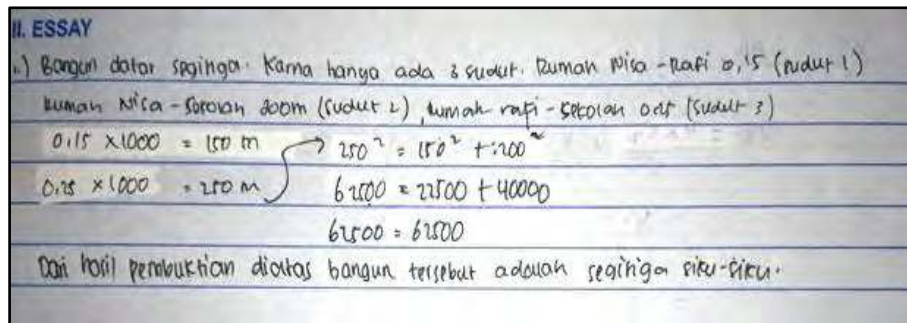 II. ESSAY
1.) Bangun datar segitiga. Karna hanya ada 3 sudut. Rumah Nisa - Rafi 0,15 (sudut 1)
Rumah Nisa - Sekolah 200m (sudut 2), rumah rafi - sekolah 0,25 (sudut 3)
0.15 x1000 = 150 m 250² = 150² + 200²
0.25 x1000 = 250 m 62500 = 22500 + 40000
62500 = 62500
Dari hasil pembuktian diatas bangun tersebut adalah segitiga siku-siku.